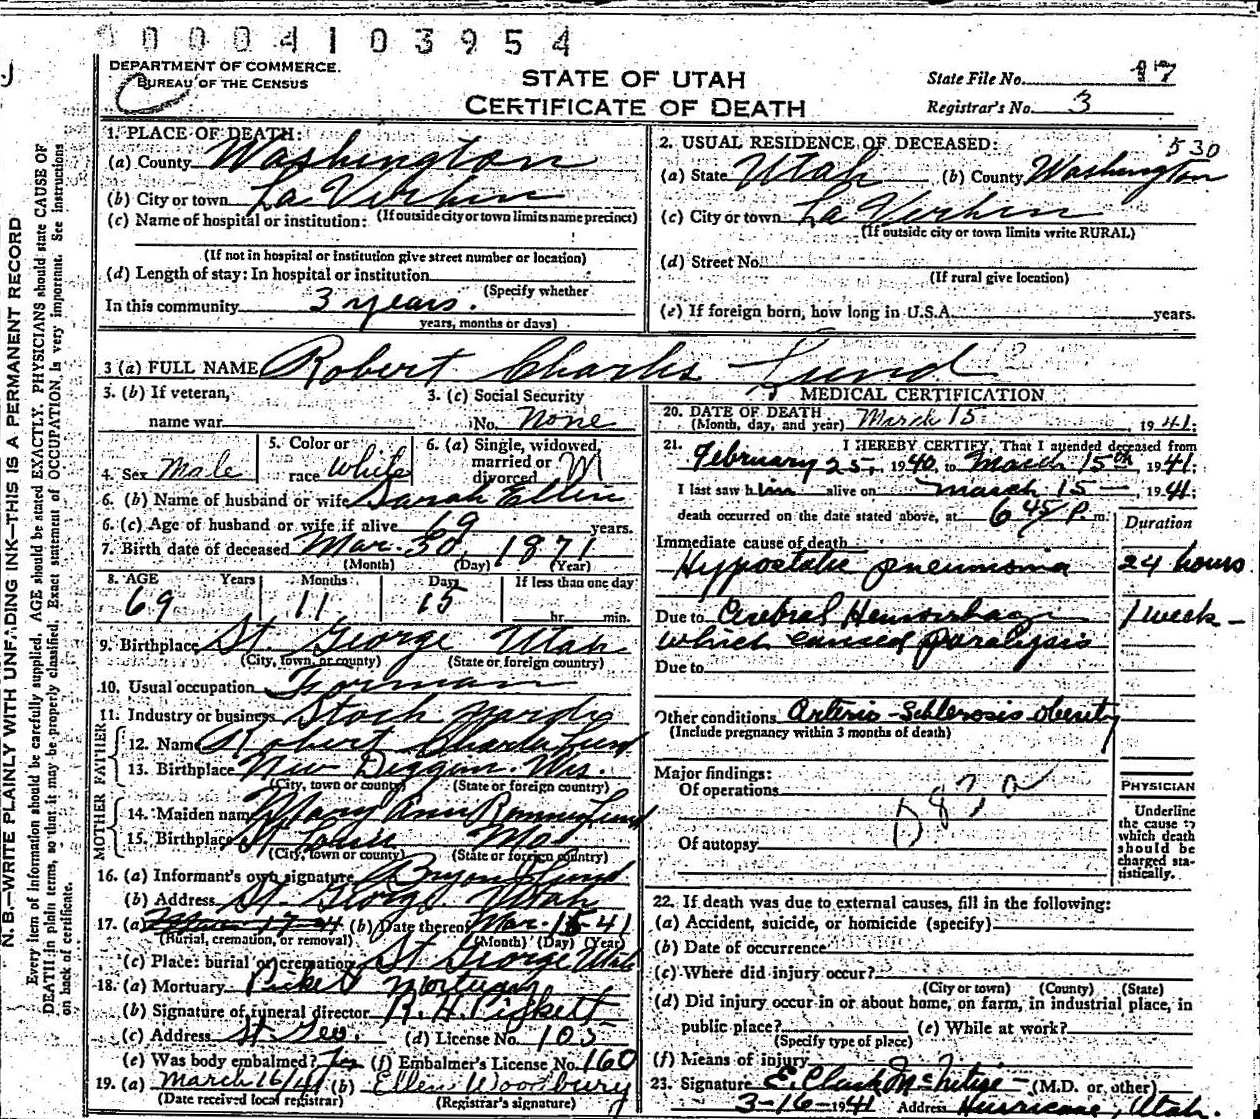 0 0 0 0 4 1 0 3 9 5 4
DEPARTMENT OF COMMERCE.
BUREAU OF THE CENSUS
STATE OF UTAH
CERTIFICATE OF DEATH
State File No. 17
Registrar's No. 3
N. B.—WRITE PLAINLY WITH UNFADING INK—THIS IS A PERMANENT RECORD
Every item of information should be carefully supplied. AGE should be stated EXACTLY. PHYSICIANS should state CAUSE OF
DEATH in plain terms, so that it may be properly classified. Exact statement of OCCUPATION is very important. See instructions
on back of certificate.
1. PLACE OF DEATH:
(a) County Washington
(b) City or town La Verkin
(If outside city or town limits name precinct)
(c) Name of hospital or institution:
(If not in hospital or institution give street number or location)
(d) Length of stay: In hospital or institution
(Specify whether
In this community 3 years.
years, months or days)
2. USUAL RESIDENCE OF DECEASED: 530
(a) State Utah (b) County Washington
(c) City or town La Verkin
(If outside city or town limits write RURAL)
(d) Street No.
(If rural give location)
(e) If foreign born, how long in U.S.A. years.
3 (a) FULL NAME Robert Charles Lund
3. (b) If veteran,
name war
3. (c) Social Security
No. None
4. Sex Male
5. Color or
race White
6. (a) Single, widowed,
married or
divorced M
6. (b) Name of husband or wife Sarah Ellen
6. (c) Age of husband or wife if alive 69 years.
7. Birth date of deceased Mar. 30, 1871
(Month) (Day) (Year)
8. AGE Years Months Days If less than one day
69 11 15 hr. min.
9. Birthplace St. George Utah
(City, town, or county) (State or foreign country)
10. Usual occupation
11. Industry or business Stock Yards
FATHER
12. Name Robert Charles Lund
13. Birthplace New Diggin. Wis.
(City, town or county) (State or foreign country)
MOTHER
14. Maiden name Mary Ann Romney Lund
15. Birthplace St Louis Mo
(City, town or county) (State or foreign country)
16. (a) Informant's own signature Lund
(b) Address St. George Utah
17. (a) (b) Date thereof Mar. 41
(Burial, cremation, or removal) (Month) (Day) (Year)
(c) Place: burial or cremation St George Utah
18. (a) Mortuary Pickett Mortuary
(b) Signature of funeral director R. H. Pickett
(c) Address St. Geo. (d) License No. 105
(e) Was body embalmed? Yes (f) Embalmer's License No. 160
19. (a) March 16/41 (b) Ellen Woodbury
(Date received local registrar) (Registrar's signature)
MEDICAL CERTIFICATION
20. DATE OF DEATH
(Month, day, and year) March 15 , 1941;
21. I HEREBY CERTIFY, That I attended deceased from
February 25, 1940, to March 15th, 1941;
I last saw him alive on March 15—, 1941;
death occurred on the date stated above, at 6 45/ P. m.
Duration
Immediate cause of death
Hypostatic pneumonia 24 hours.
Due to Cerebral Hemorrhage 1 week—
which caused paralysis
Due to
Other conditions Arterio-Schlerosis obesity
(Include pregnancy within 3 months of death)
Major findings:
Of operations
Of autopsy
PHYSICIAN
Underline
the cause to
which death
should be
charged sta-
tistically.
22. If death was due to external causes, fill in the following:
(a) Accident, suicide, or homicide (specify)
(b) Date of occurrence
(c) Where did injury occur?
(City or town) (County) (State)
(d) Did injury occur in or about home, on farm, in industrial place, in
public place? (e) While at work?
(Specify type of place)
(f) Means of injury
23. Signature E. Clark McIntire (M.D. or other)
3-16-1941 Address Hurricane, Utah.